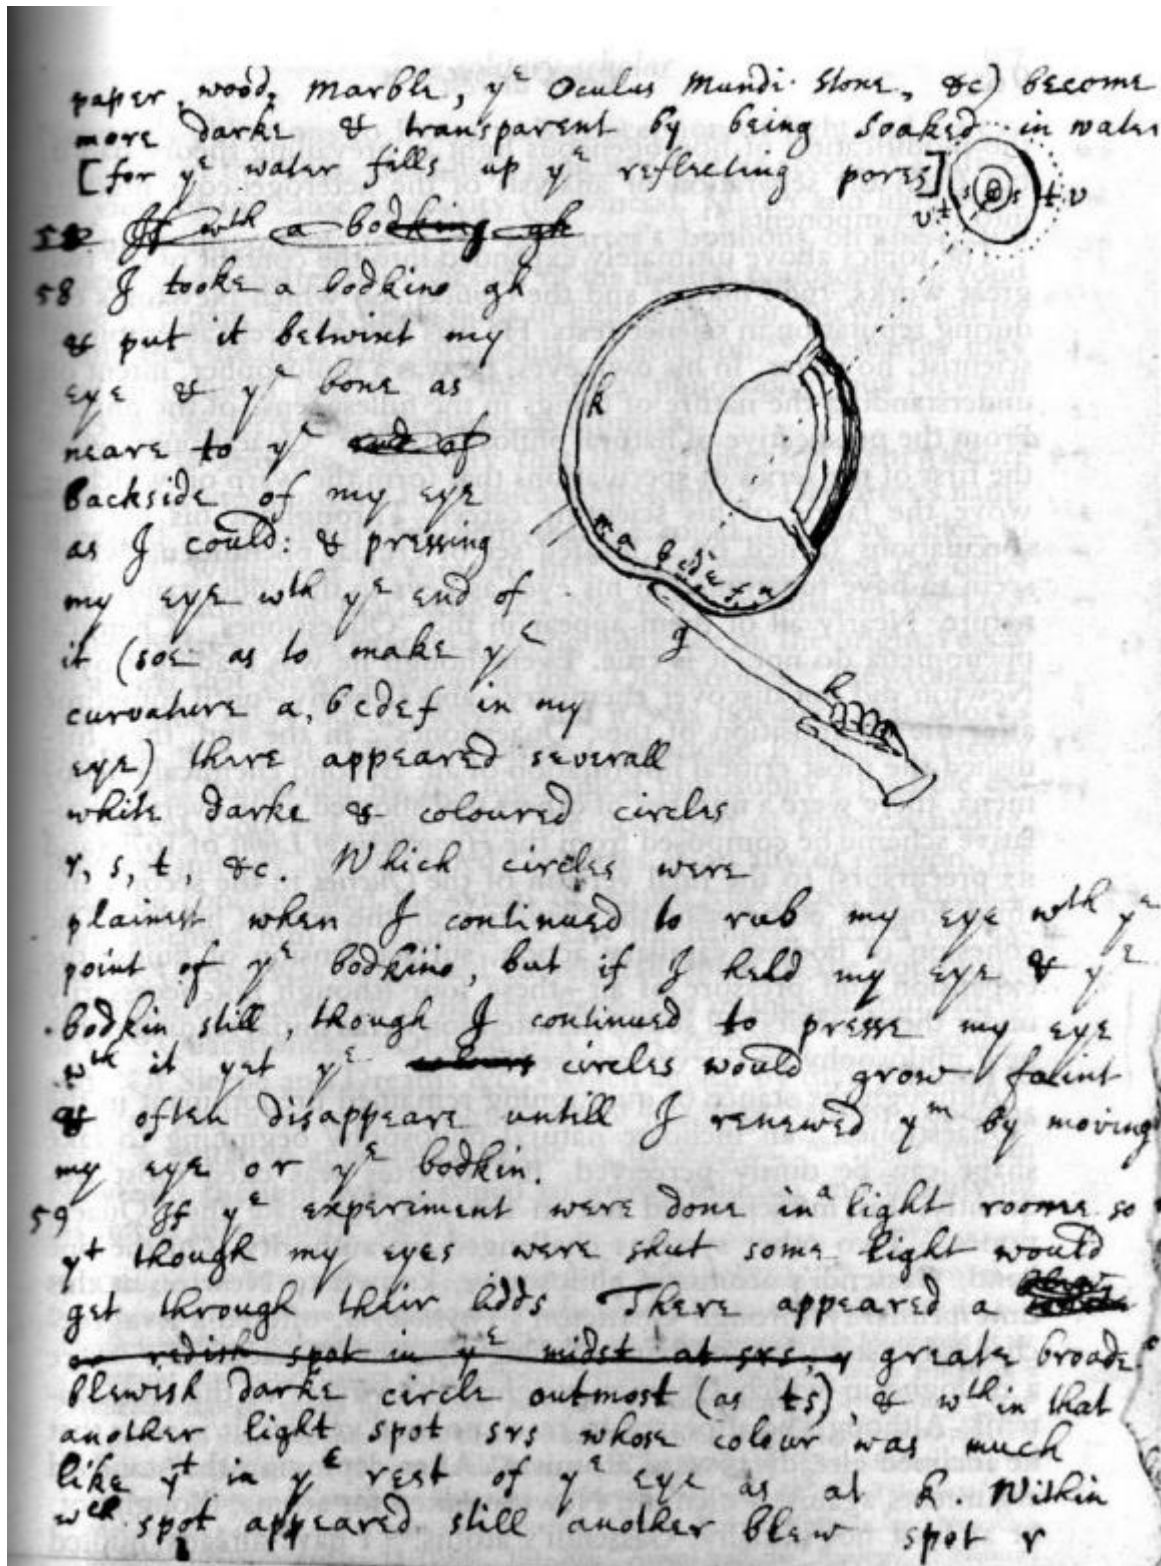 paper, wood, marble, yᵉ Oculus Mundi stone, &c) become
more darke & transparent by being soaked in water
[for yᵉ water fills up yᵉ reflecting pores]
58 If wᵗʰ a bodking gh
58 I tooke a bodkine gh
& put it betwixt my
eye & yᵉ bone as
neare to yᵉ end of
backside of my eye
as I could: & pressing
my eye wᵗʰ yᵉ end of
it (soe as to make yᵉ
curvature a, bcdef in my
eye) there appeared severall
white darke & coloured circles
r, s, t, &c. Which circles were
plainest when I continued to rub my eye wᵗʰ yᵉ
point of yᵉ bodkine, but if I held my eye & yᵉ
bodkin still, though I continued to presse my eye
wᵗʰ it yet yᵉ circles would grow faint
& often disappeare untill I renewed yᵐ by moving
my eye or yᵉ bodkin.
59 If yᵉ experiment were done in a light roome so
yᵗ though my eyes were shut some light would
get through their lidds There appeared a
redish spot in yᵉ midst at srs, greate broade
blewish darke circle outmost (as ts), & wᵗʰin that
another light spot srs whose colour was much
like yᵗ in yᵉ rest of yᵉ eye as at k. Within
wᶜʰ spot appeared still another blew spot r
s s
t v
v t
k
m a b c d e f n
g
h